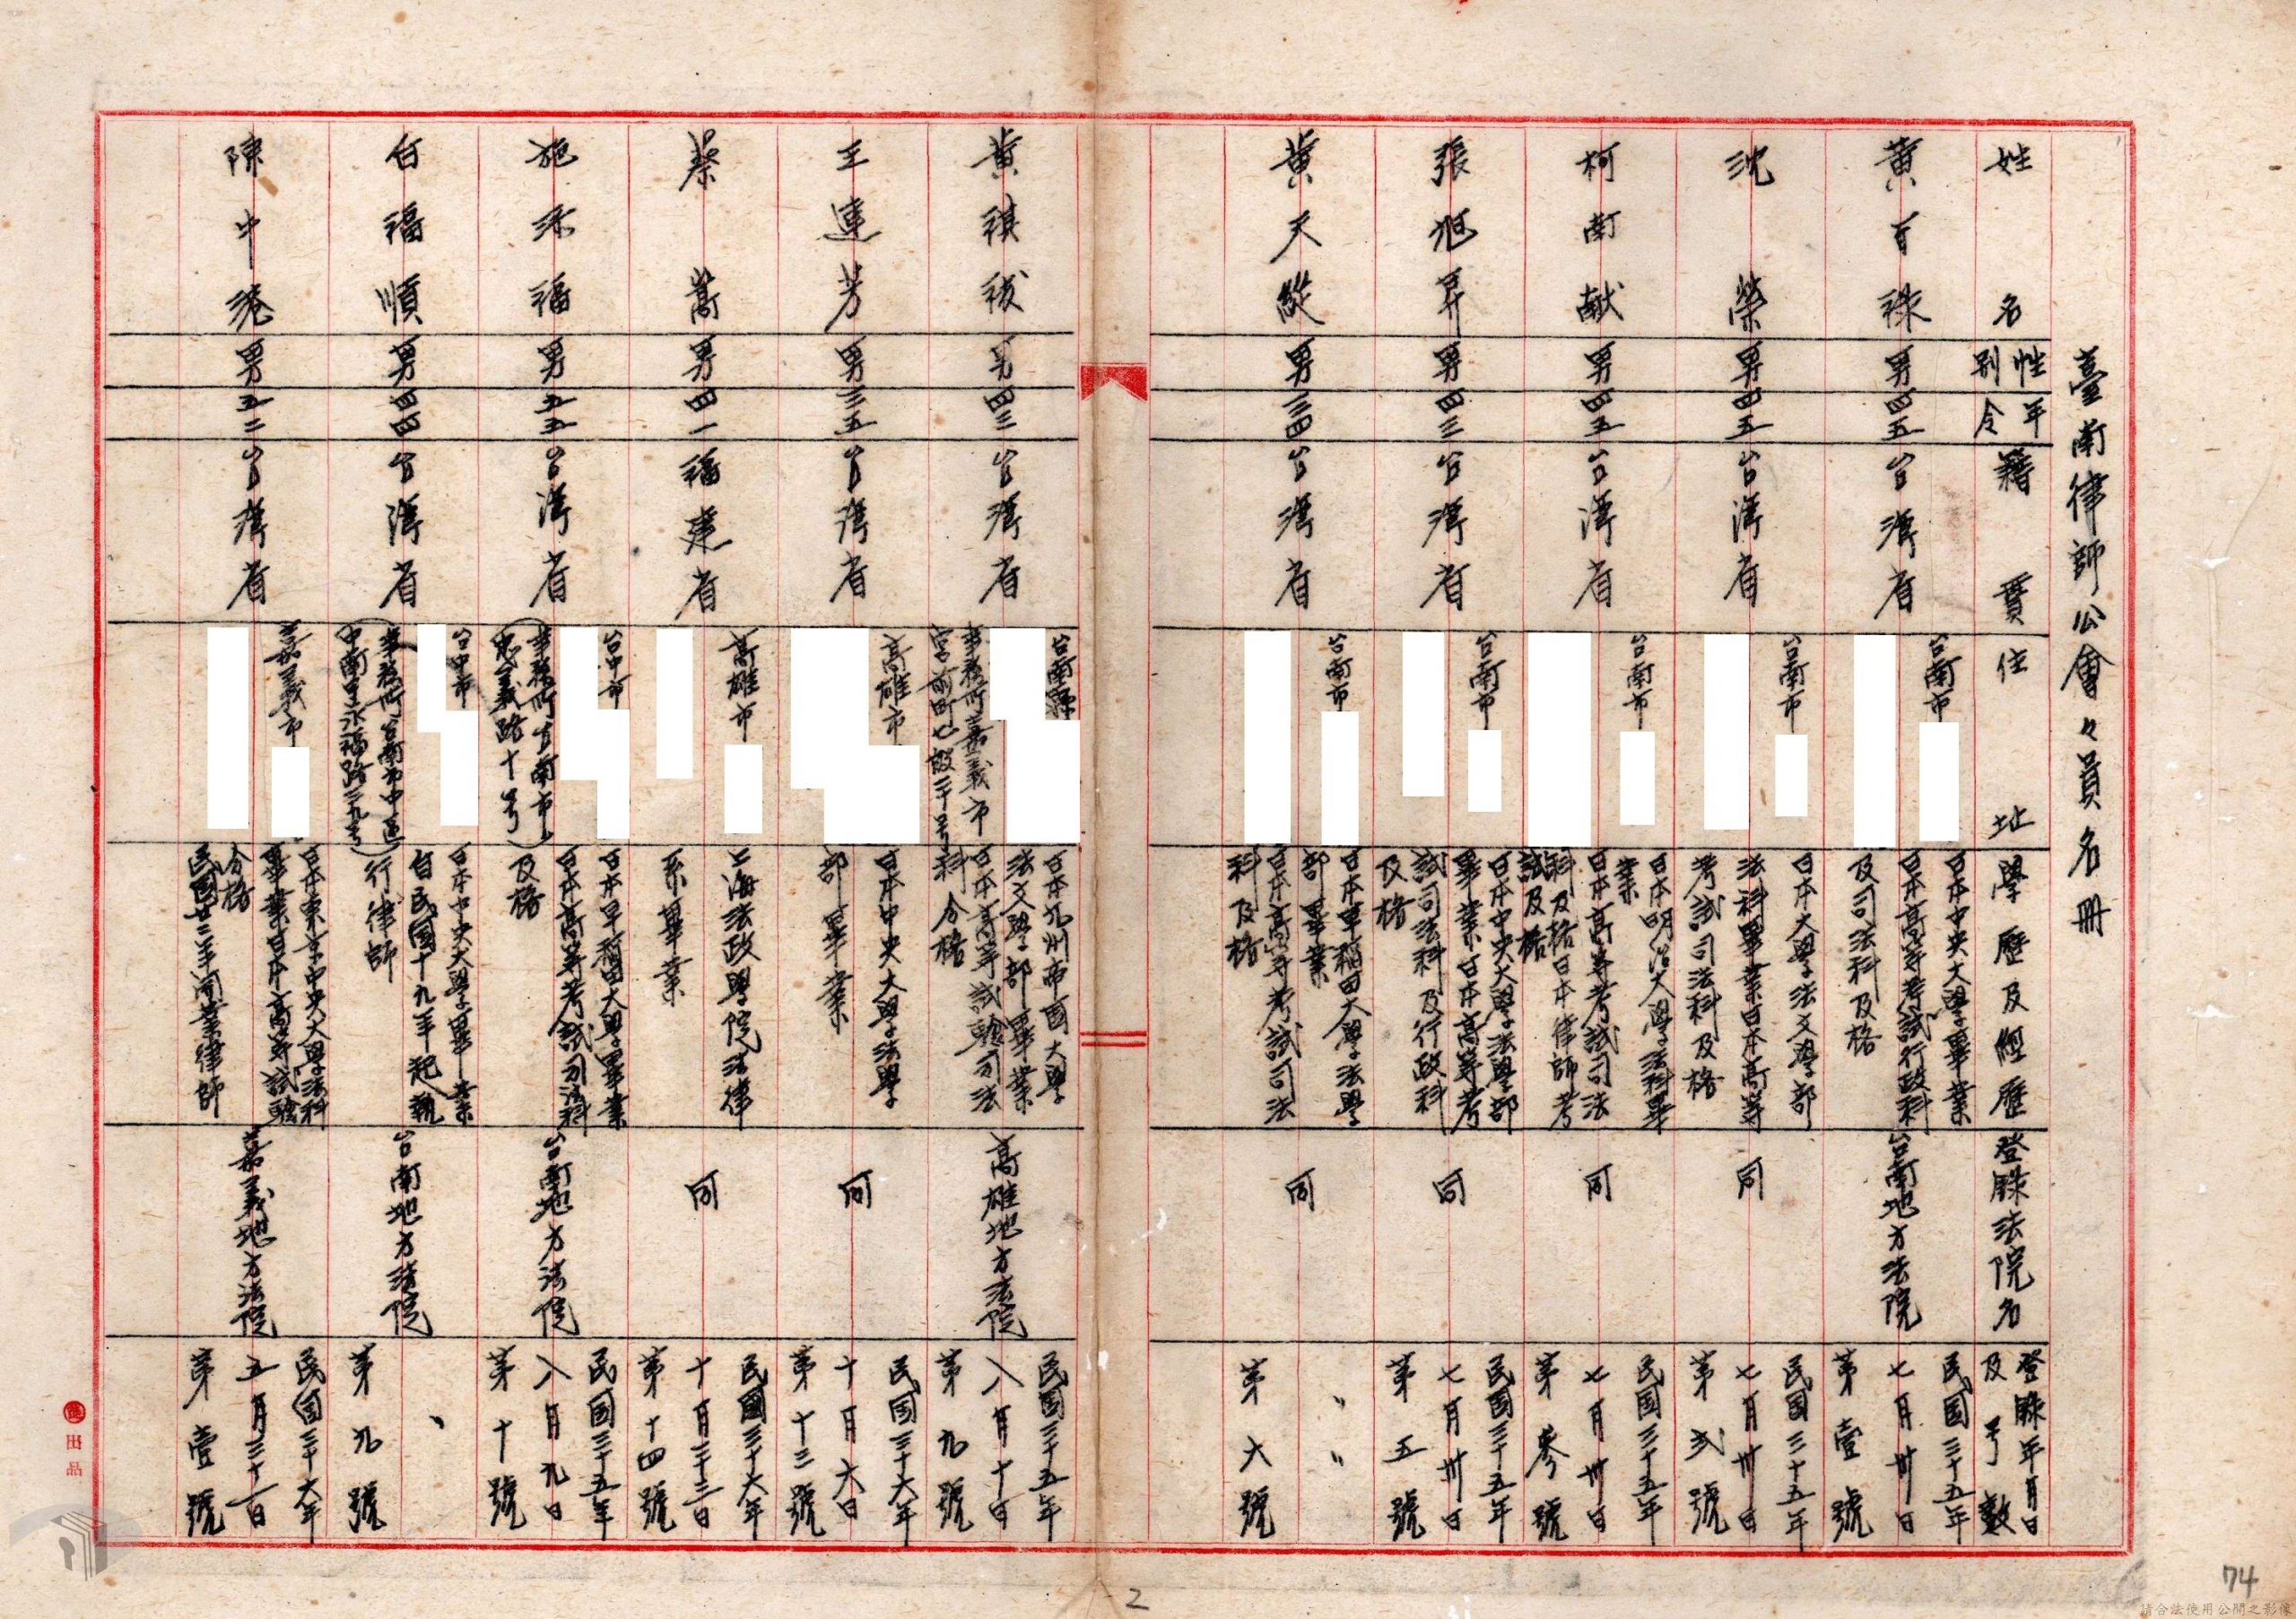 臺南律師公會々員名冊
姓名
性別
年令
籍貫
住址
學歷及經歷
登錄法院名
登錄年月日及号數
黃百祿
男
四五
台灣省
台南市
日本中央大學畢業
日本高等考試行政科
及司法科及格
台南地方法院
民國三十五年
七月卅日
第壹號
沈榮
男
四五
台灣省
台南市
日本大學法文學部
法科畢業日本高等
考試司法科及格
同
民國三十五年
七月卅日
第弍號
柯南献
男
四五
台灣省
台南市
日本明治大學法科畢
業
日本高等考試司法
科及格日本律師考
試及格
同
民國三十五年
七月卅日
第參號
張旭昇
男
四三
台灣省
台南市
日本中央大學法學部
畢業日本高等考
試司法科及行政科
及格
同
民國三十五年
七月卅日
第五號
黃天縱
男
三四
台灣省
台南市
日本早稻田大學法學
部畢業
日本高等考試司法
科及格
同
〃〃
第六號
黃祺祓
男
四三
台灣省
台南縣
事務所嘉義市
宮前町七段三十号
日本九州帝國大學
法文學部畢業
日本高等試驗司法
科合格
高雄地方法院
民國三十五年
八月十日
第九號
王連芳
男
三五
台灣省
高雄市
日本中央大學法學
部畢業
同
民國三十六年
十月六日
第十三號
蔡萬
男
四一
福建省
高雄市
上海法政學院法律
系畢業
同
民國三十六年
十月三十三日
第十四號
施添福
男
五五
台灣省
台中市
(事務所台南市
忠義路十号)
日本早稻田大學畢業
日本高等考試司法科
及格
台南地方法院
民國三十五年
八月九日
第十號
白福順
男
四四
台灣省
台中市
(事務所台南市中區
中南里永福路三九号)
日本中央大學畢業
自民國十九年起執
行律師
台南地方法院
〃
第九號
陳中港
男
五二
台灣省
嘉義市
日本東京中央大學法科
畢業日本高等試驗
合格
民國廿二年開業律師
嘉義地方法院
民國三十六年
五月三十一日
第壹號
出品
2
74
請合法使用公開之影像